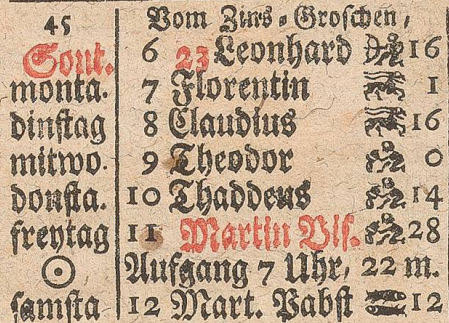 45 Vom Zins-Groschen,
Sont. 6 23 Leonhard 16
monta. 7 Florentin 1
dinstag 8 Claudius 16
mitwo. 9 Theodor 0
donsta. 10 Thaddeus 14
freytag 11 Martin Bis. 28
☉ Aufgang 7 Uhr, 22 m.
samsta 12 Mart. Pabst 12